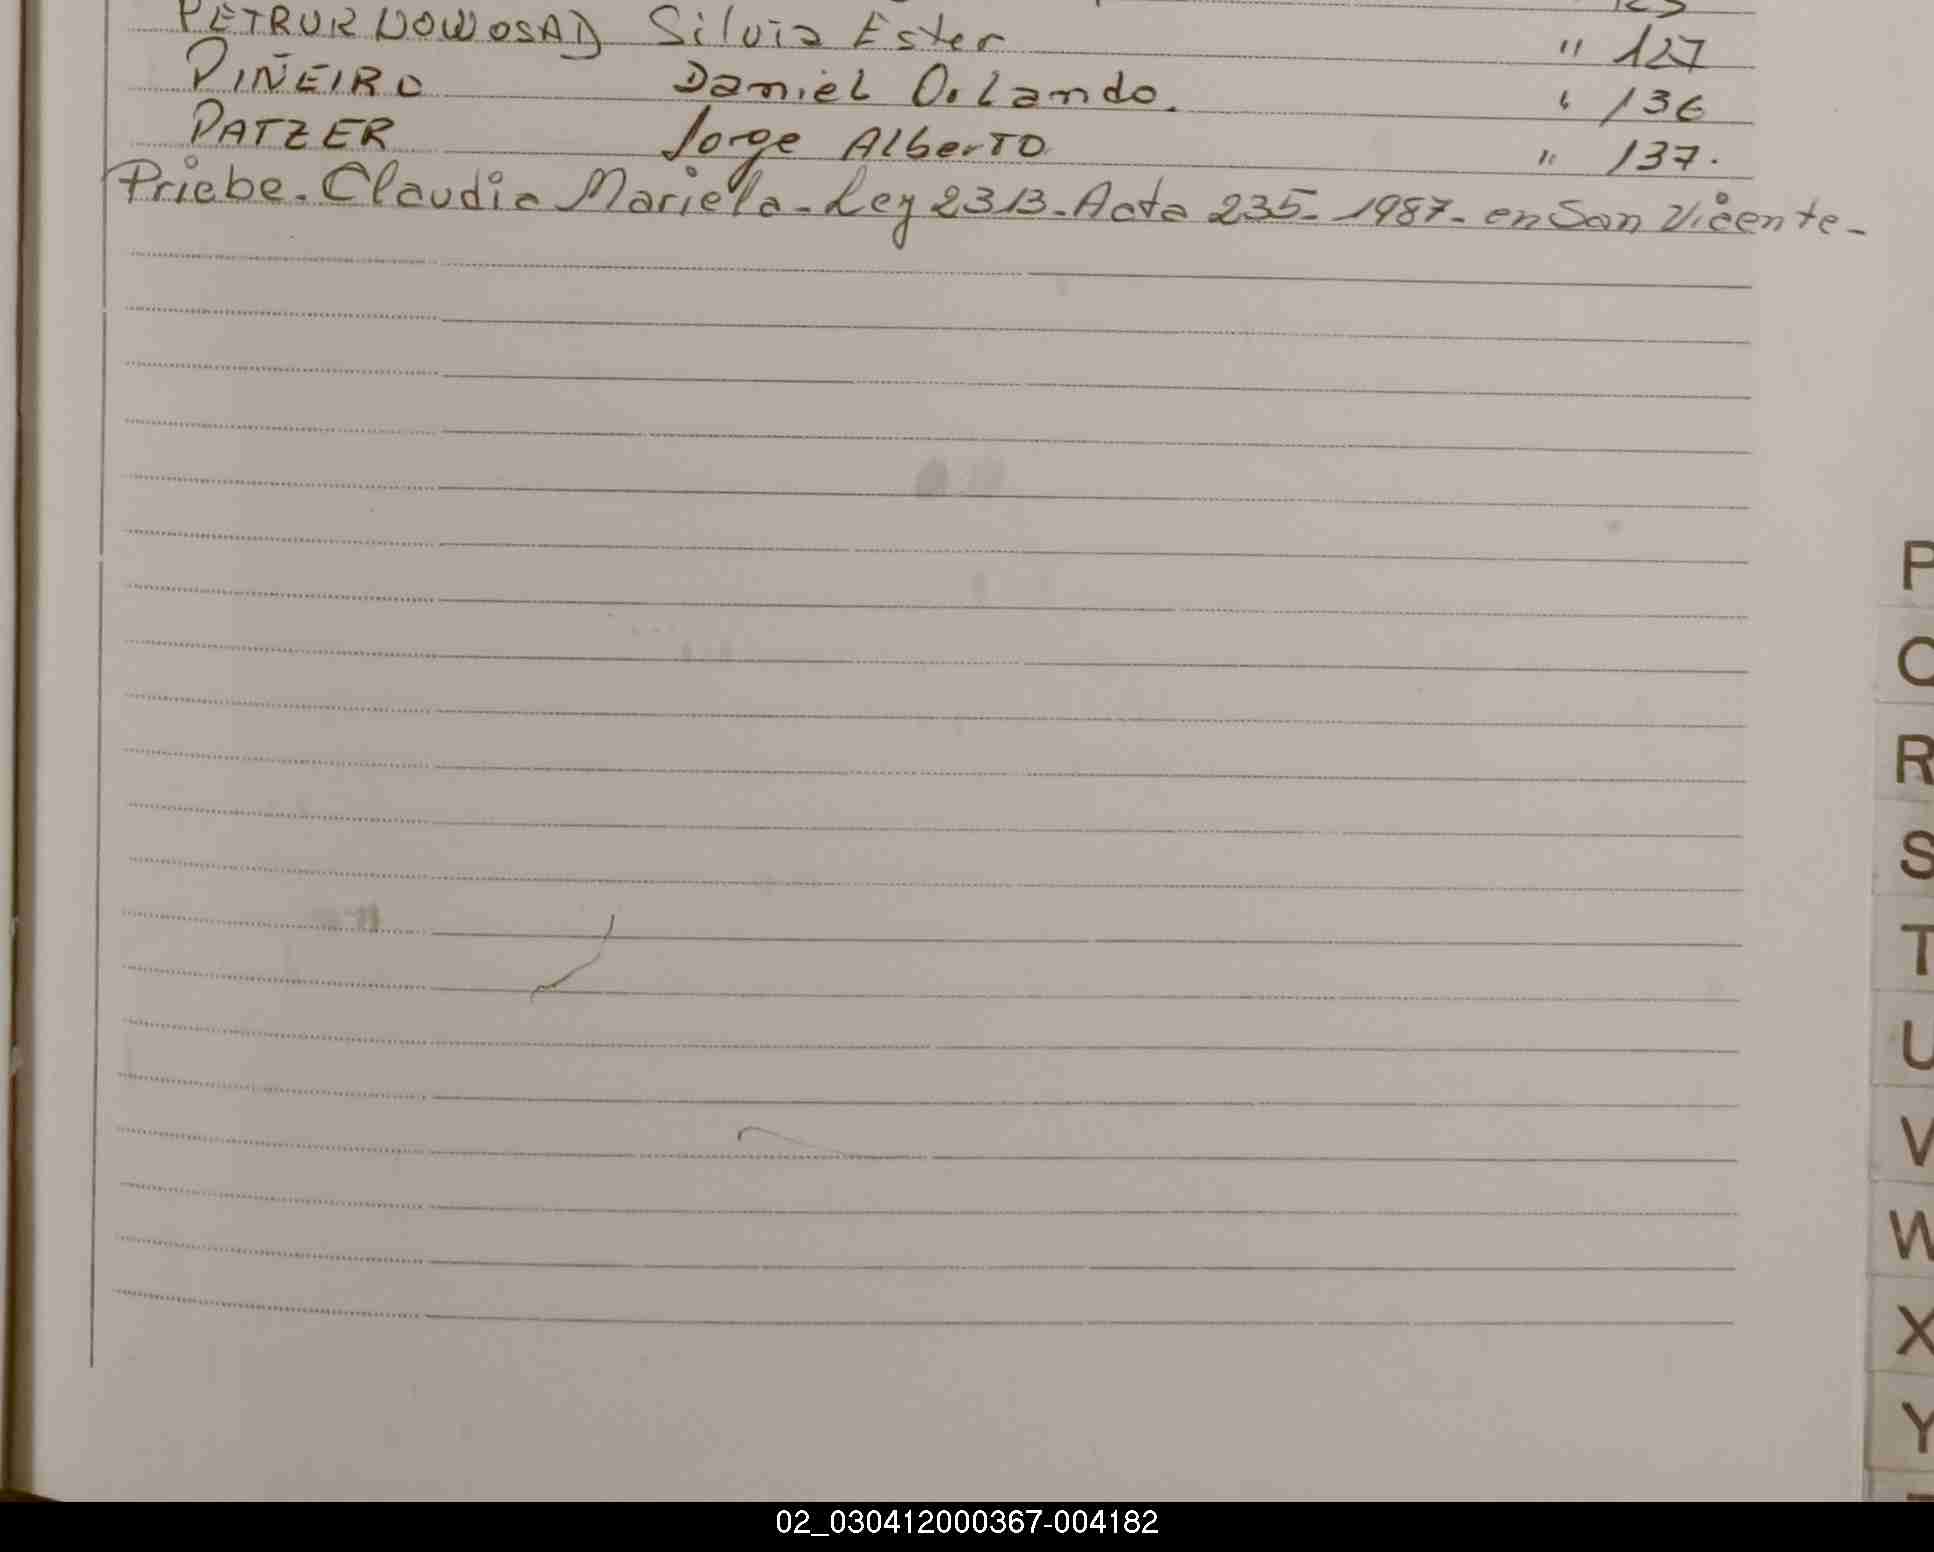 PETRUK NOWOSAD Silvia Ester " 127
PIÑEIRO Daniel Orlando. " 136
PATZER Jorge Alberto " 137.
Priebe. Claudia Mariela - Ley 2313 - Acta 235 - 1987 - en San Vicente -
P
Q
R
S
T
U
V
W
X
Y
02_030412000367-004182